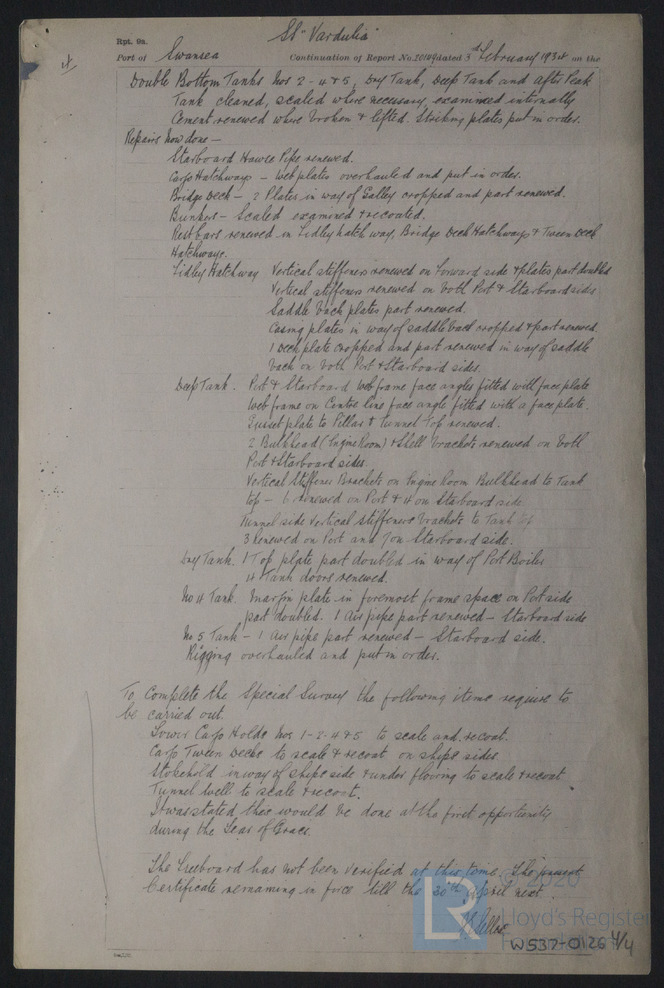 SS "Vardulia"
Rpt. 9a.
4
Port of Swansea Continuation of Report No. 20149 dated 3rd February 1934 on the
Double Bottom Tanks Nos 2-4 & 5, Dry Tank, Deep Tank and After Peak
Tank cleaned, scaled where necessary, examined internally
Cement renewed where broken & lifted. Striking plates put in order.
Repairs Now done —
Starboard Hawse Pipe renewed.
Cargo Hatchways - Web plates overhauled and put in order.
Bridge Deck - 2 Plates in way of Galley cropped and part renewed.
Bunkers - Scaled examined & recoated.
Rest bars renewed in Fidley hatch way, Bridge Deck Hatchways & Tween Deck
Hatchways.
Fidley Hatchway Vertical stiffeners renewed on Forward side & plates part doubled
Vertical stiffeners renewed on both Port & Starboard sides
Saddle back plates part renewed.
Casing plates in way of saddle back cropped & part renewed
1 Deck plate cropped and part renewed in way of saddle
back on both Port & Starboard sides.
Deep Tank. Port & Starboard web frame face angles fitted with face plate
Web frame on Centre line face angle fitted with a face plate.
Gusset plate to Pillar & Tunnel Top renewed.
2 Bulkhead (Engine Room) & Shell brackets renewed on both
Port & Starboard sides.
Vertical Stiffener Brackets on Engine Room Bulkhead to Tank
top - 6 renewed on Port & 4 on Starboard side
Tunnel side vertical stiffeners brackets to Tank top
3 Renewed on Port and 7 on Starboard side.
Dry Tank. 1 Top plate part doubled in way of Port Boiler
14 Tank doors renewed.
No 4 Tank. Margin plate in foremost frame space on Port side
part doubled. 1 Air pipe part renewed - Starboard side
No 5 Tank - 1 air pipe part renewed - Starboard side.
Rigging overhauled and put in order.
To Complete the Special Survey the following items require to
be carried out.
Lower Cargo Holds Nos 1-2-4 & 5 to scale and recoat.
Cargo Tween Decks to scale & recoat on ships sides.
Stokehold in way of ships side & under flooring to scale & recoat
Tunnel well to scale & recoat.
It was stated this would be done at the first opportunity
during the Year of Grace.
The Freeboard has not been verified at this time. The present
Certificate remaining in force till the 30th April next.
© 2020
LR
Lloyd's Register
Foundation
W537-0126 4/4